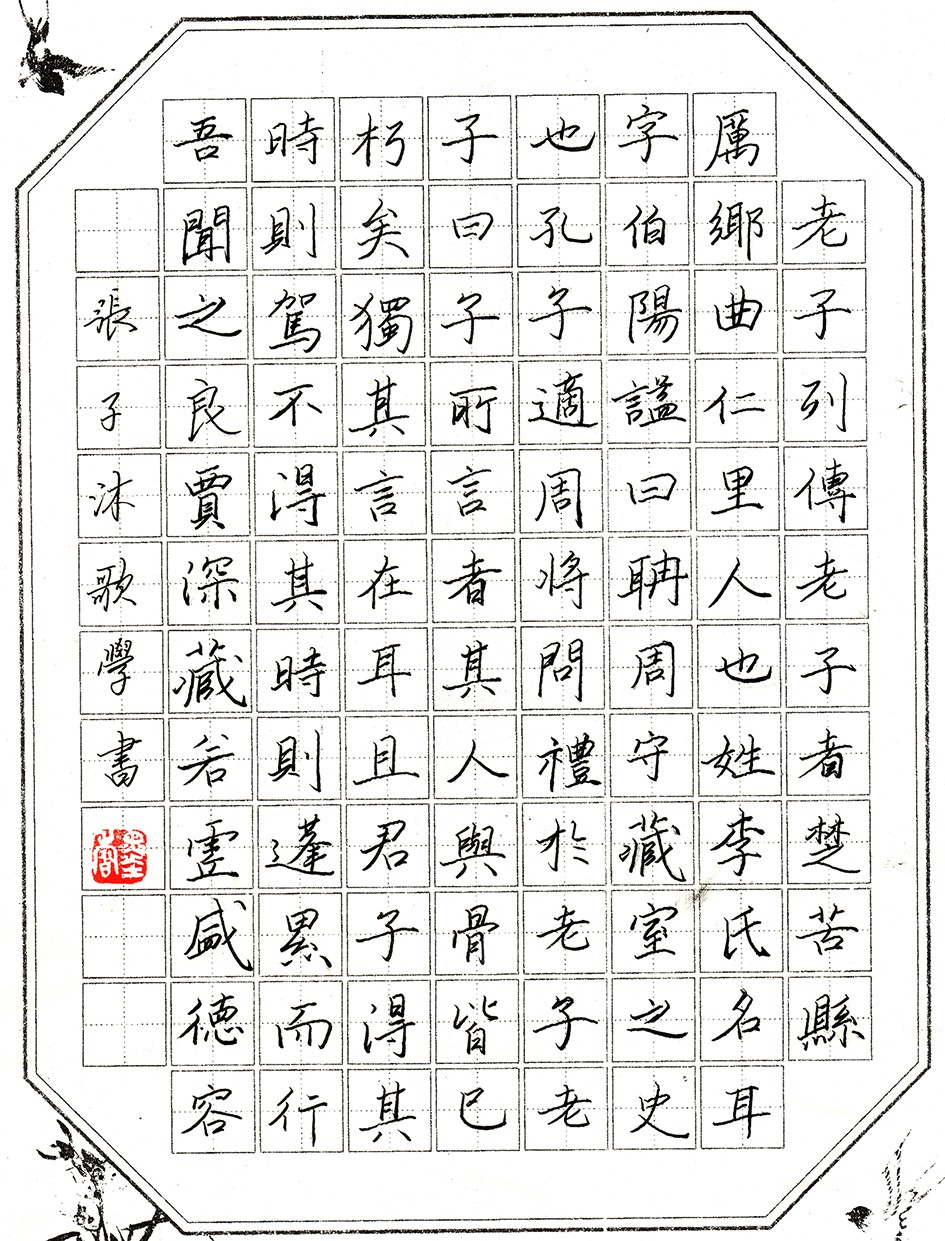 老子列傳老子者楚苦縣
厲鄉曲仁里人也姓李氏名耳
字伯陽謚曰聃周守藏室之史
也孔子適周將問禮於老子老
子曰子所言者其人與骨皆已
朽矣獨其言在耳且君子得其
時則駕不得其時則蓬累而行
吾聞之良賈深藏若虛盛德容
張子沐歌學書